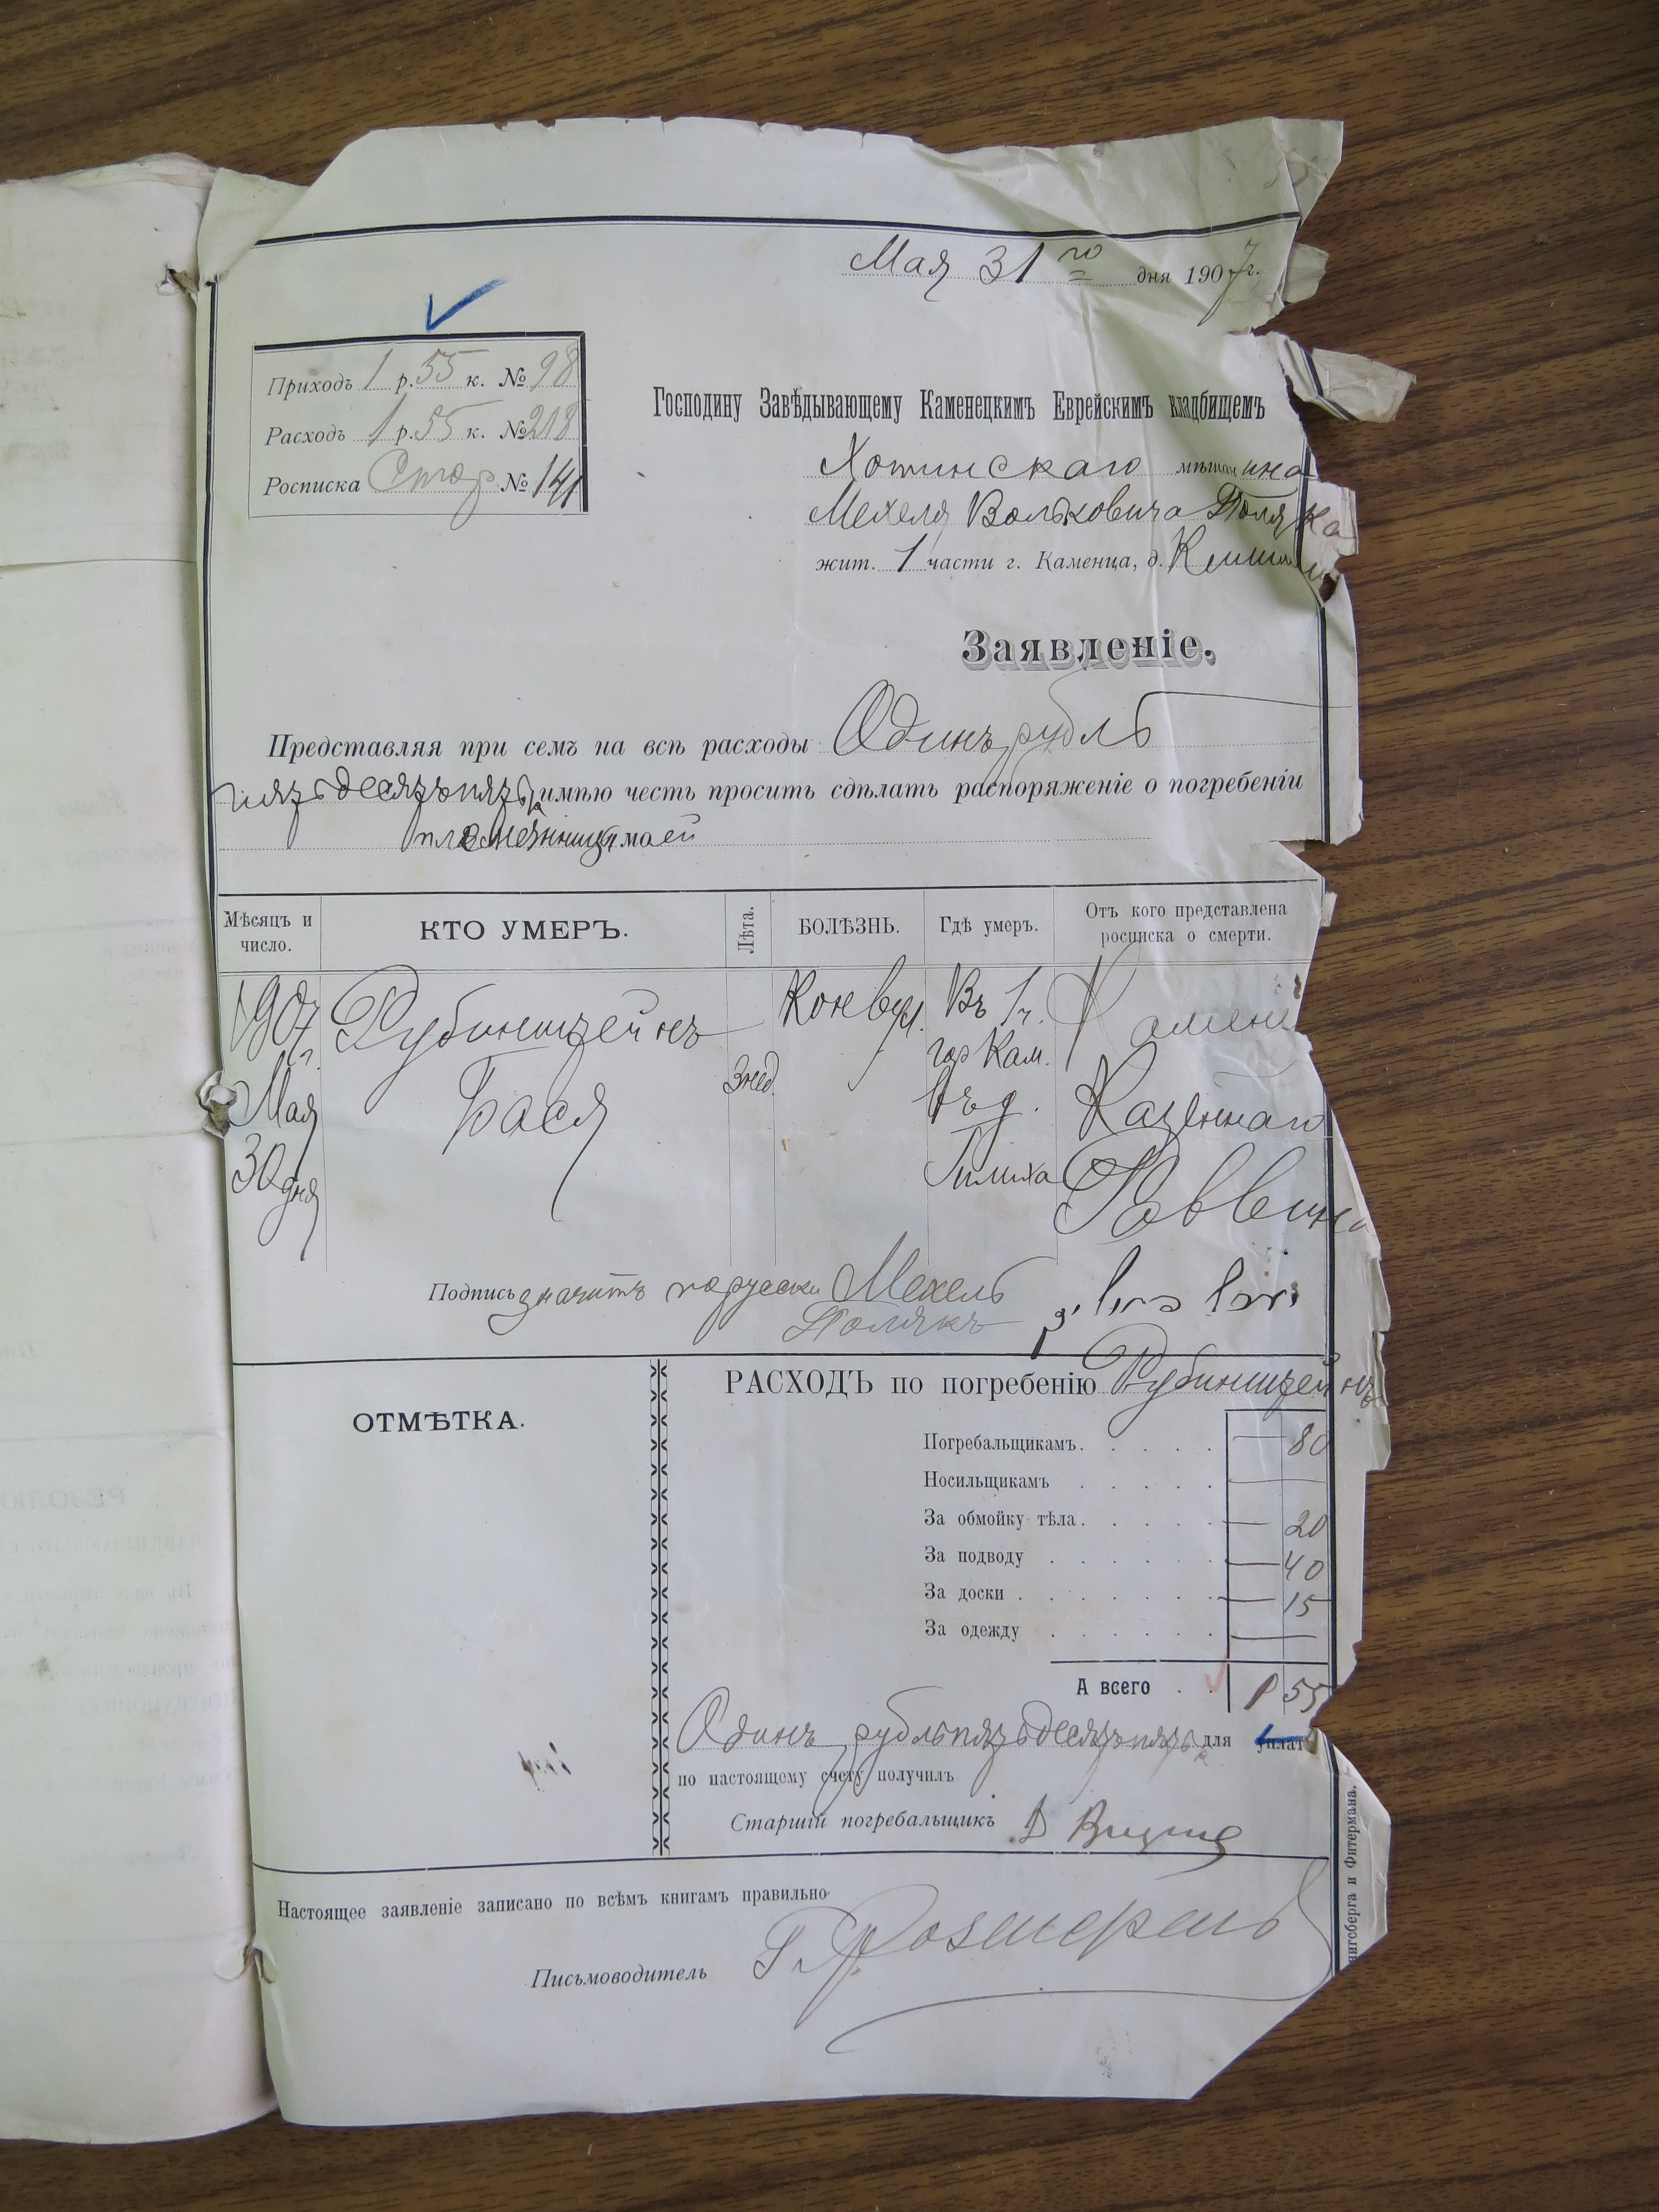 Мая 31го дня 1907 г.
Приходъ 1 р. 55 к. № 98
Расходъ 1 р. 55 к. № 218
Росписка Стар № 141
Господину Завѣдывающему Каменецкимъ Еврейскимъ кладбищемъ
Хотинскаго мѣщанина
Мехеля Вольковича Поляка
жит. 1 части г. Каменца, д.
Заявленіе.
Представляя при семъ на всѣ расходы Одинъ рубль
пятьдесятъ пять к имѣю честь просить сдѣлать распоряженіе о погребеніи
племянницы моей
Мѣсяцъ и число. КТО УМЕРЪ. Лѣта. БОЛѢЗНЬ. Гдѣ умеръ. Отъ кого представлена росписка о смерти.
1907 г. Мая 30 дня
Рубинштейнъ
Бася
3 нед.
Конвул.
Въ 1 ч.
гор Кам.
въ д.
Камен
Казеннаго
Раввина
Подпись значитъ по русски Мехель
Полякъ
РАСХОДЪ по погребенію Рубинштейнъ
ОТМѢТКА.
Погребальщикамъ. . . . . — 80
Носильщикамъ . . . . . —
За обмойку тѣла. . . . . — 20
За подводу . . . . . — 40
За доски . . . . . . — 15
За одежду . . . . . —
А всего . . 1 55
Одинъ рубль пятьдесятъ пять к для уплат
по настоящему счету получилъ
Старшій погребальщикъ
Настоящее заявленіе записано по всѣмъ книгамъ правильно
Письмоводитель
нигсберга и Фитермана.